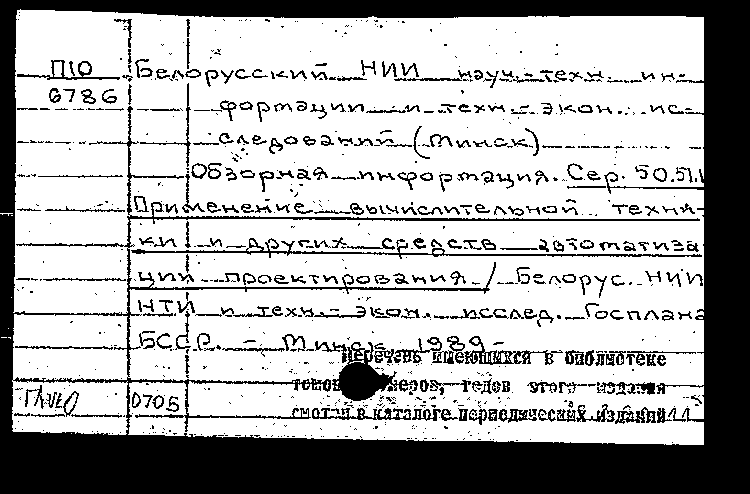 П10 Белорусский НИИ науч.-техн. ин-
6786 формации и техн.-экон. ис-
следований (Минск)
Обзорная информация. Сер. 50.51.
Применение вычислительной техни-
ки и других средств автоматиза
ции проектирования / Белорус. НИИ
НТИ и техн.-экон. исслед. Госплана
БССР. - Минск, 1989-
Перечень имеющихся в библиотеке
томов, номеров, годов этого издания
0705 смотри в каталоге периодических изданий